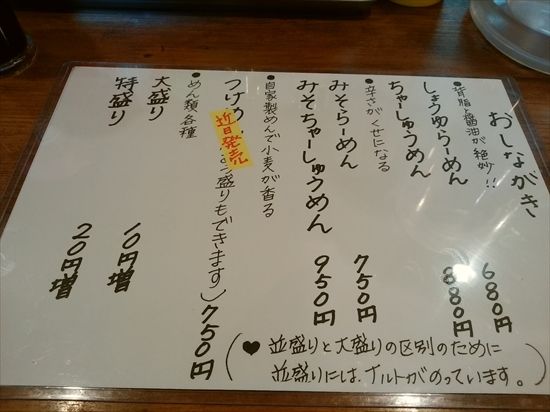 おしながき
●背脂と醤油が絶妙!!
しょうゆらーめん 680円
ちゃーしゅうめん 880円
●辛さがくせになる
みそらーめん 750円
みそちゃーしゅうめん 950円
●自家製めんで小麦が香る
つけ 盛りもできます) 750円
近日発売
●めん類各種
大盛り 10円増
特盛り 20円増
(♥ 並盛りと大盛りの区別のために
並盛りには、ナルトがのっています。)